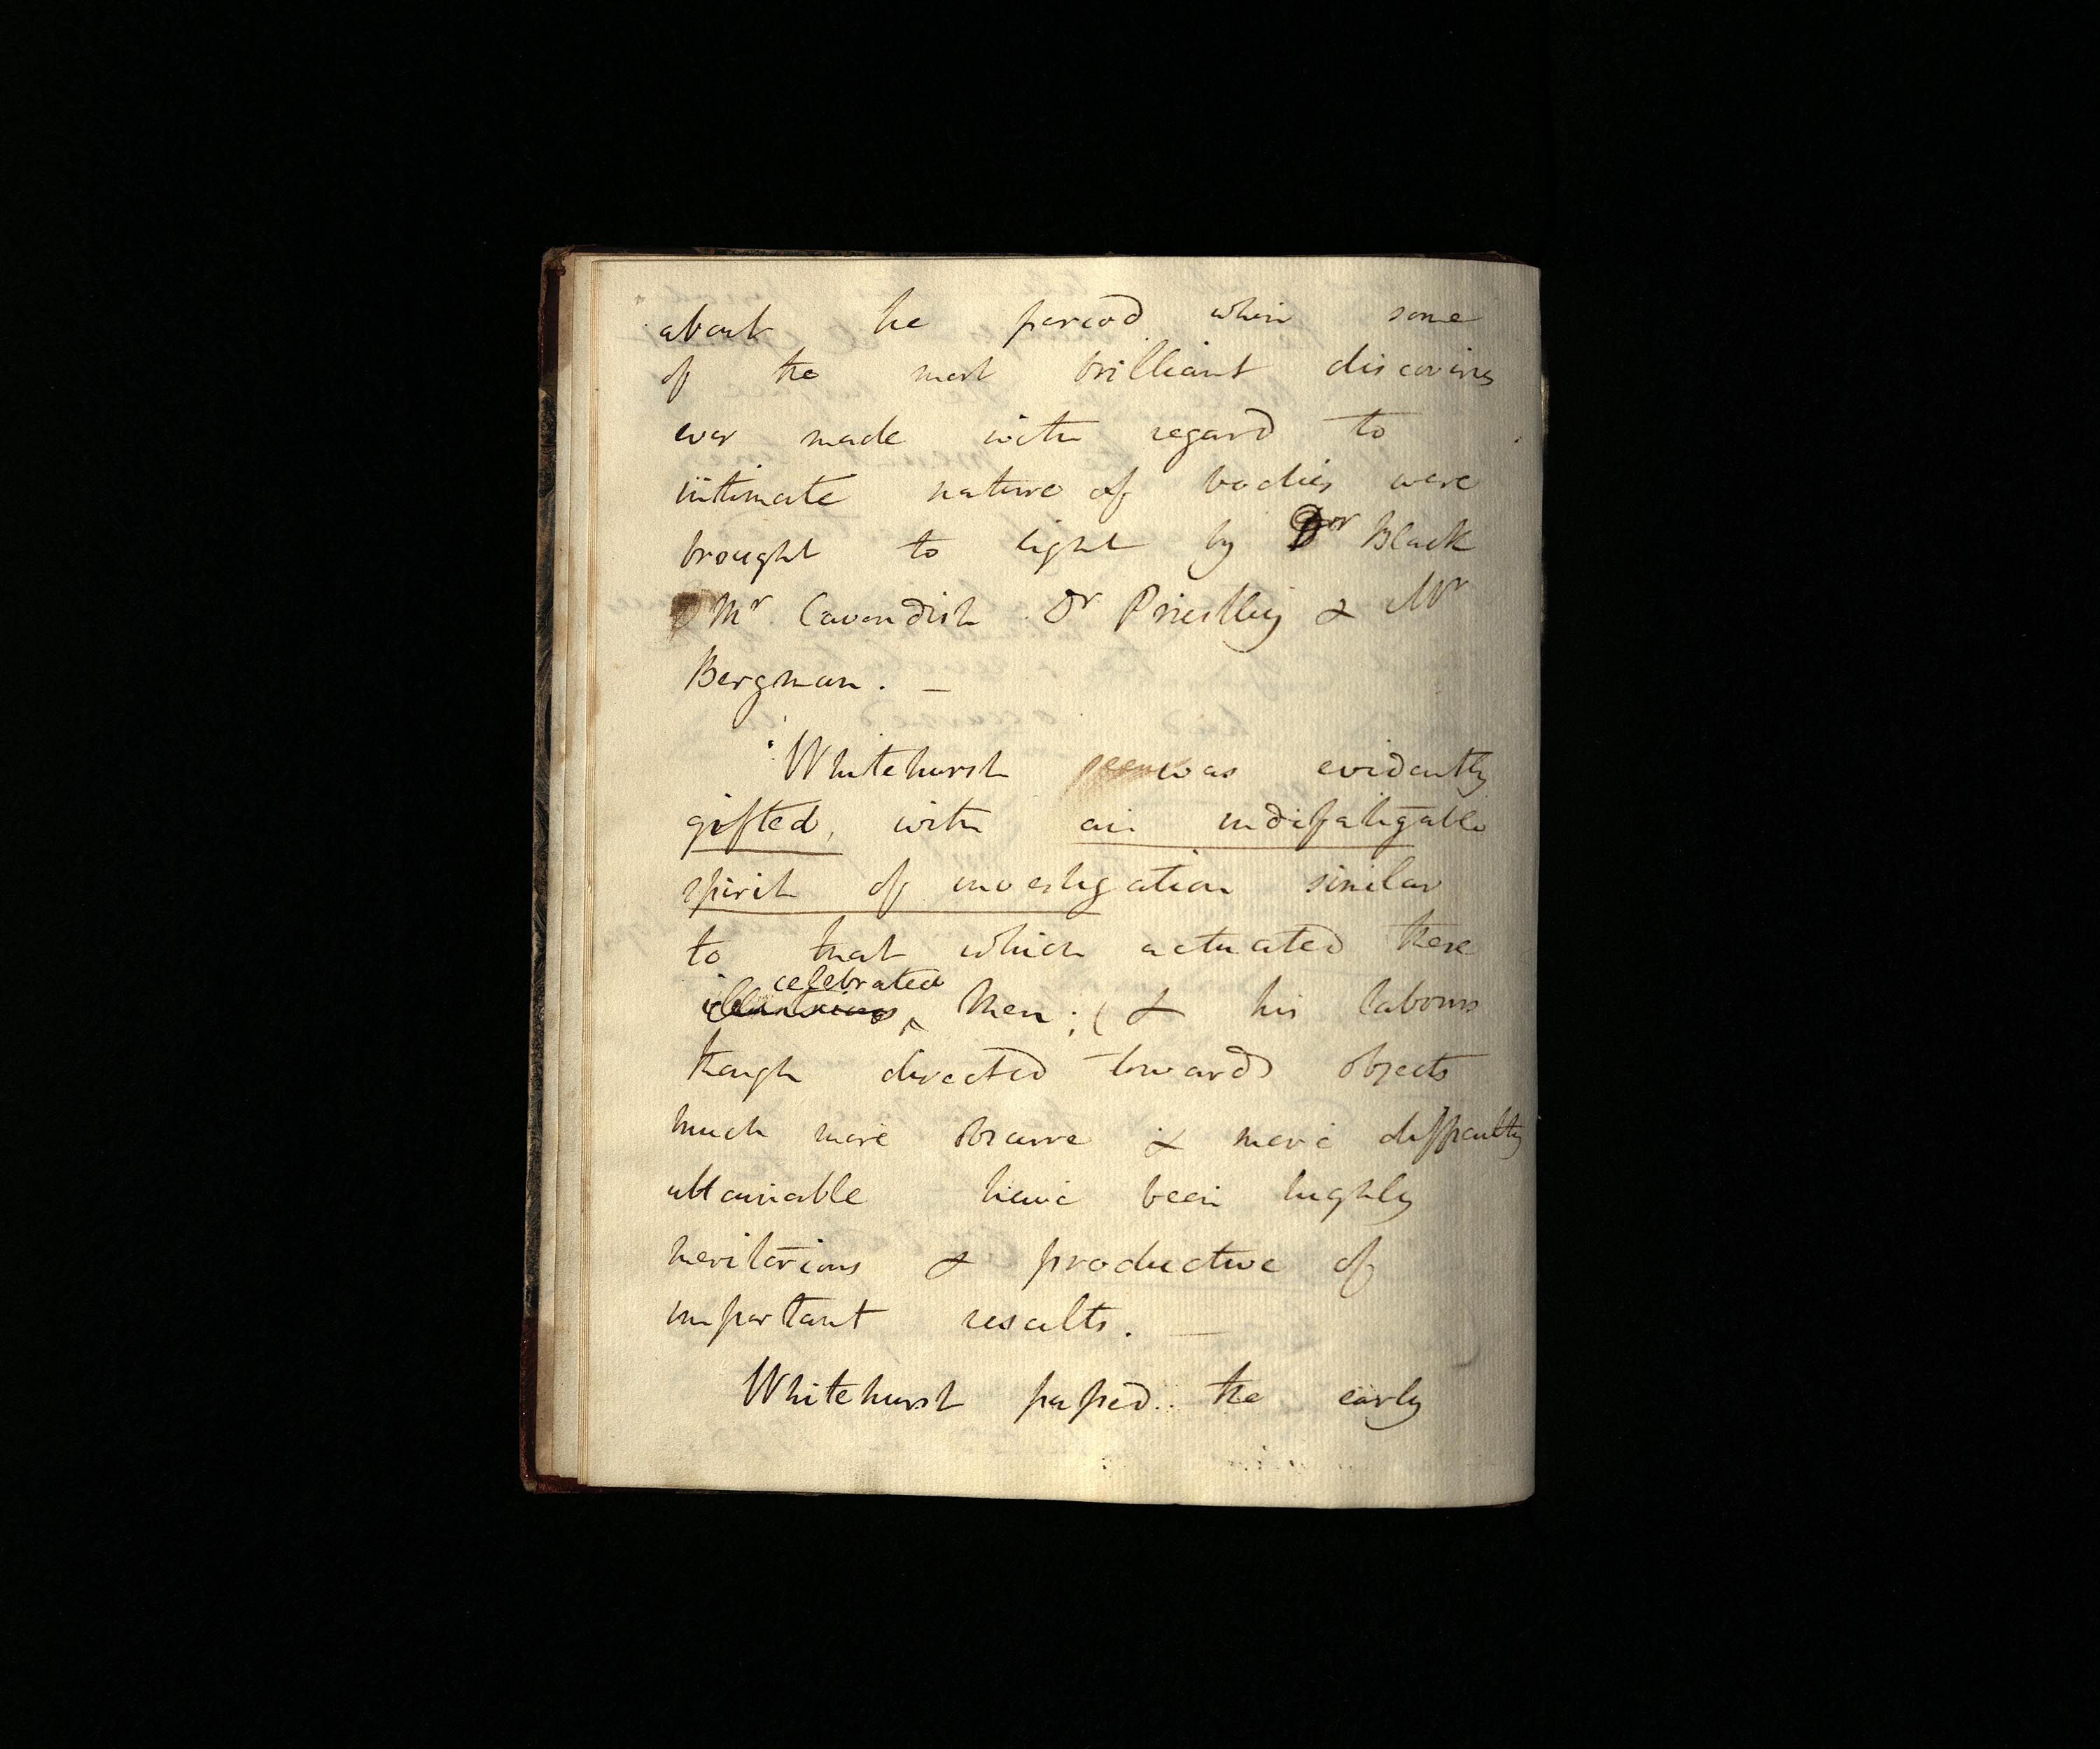 about the period when some
of the most brilliant discoveries
ever made with regard to
intimate nature of bodies were
brought to light by Dr Black
Mr Cavendish Dr Priestley & Mr
Bergman. —
Whitehurst was evidently
gifted, with an indefatigable
spirit of investigation similar
to that which actuated these
celebrated
illustrious ^ Men; (& his labours
though directed towards objects
much more obscure & more difficultly
attainable have been highly
meritorious & productive of
important results. —
Whitehurst passed the early